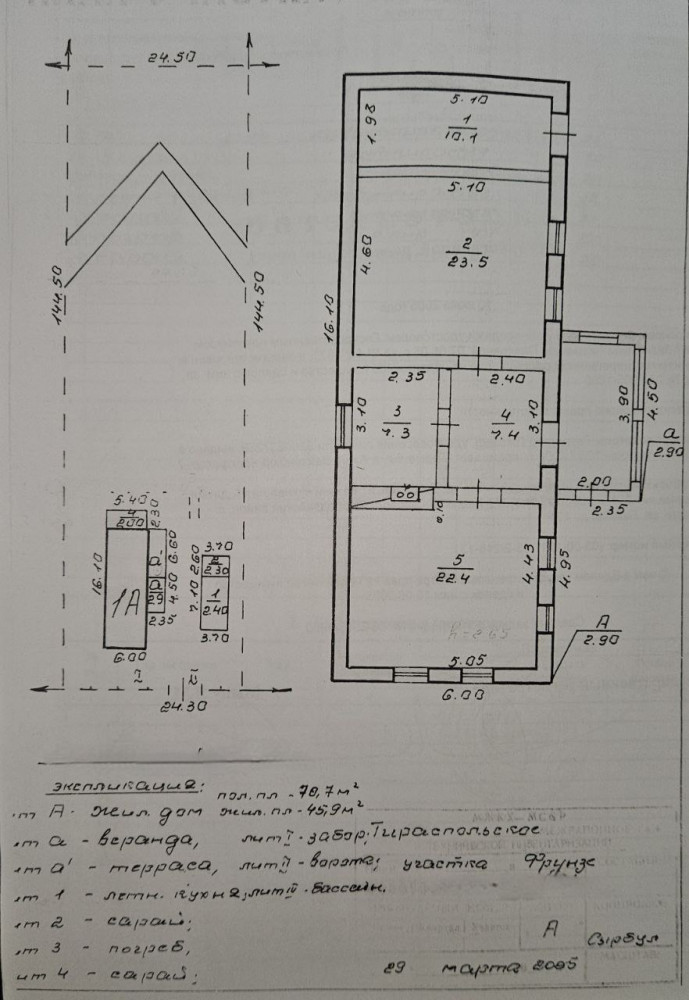 24.50
144.50
144.50
5.40
4
2.00
2.30
16.10
1А
а'
6.60
а
29
4.50
2.35
6.00
3.70
2
2.30
2.60
1
2.40
7.10
3.70
I
II
24.30
5.10
1.98
1
10.1
5.10
4.60
2
23.5
16.10
2.35
3.10
3
7.3
2.40
4
7.4
3.10
3.90
4.50
а
2.90
2.00
2.35
0.10
5
22.4
4.43
4.95
h-265
5.05
6.00
А
2.90
экспликация: пол. пл - 70,7 м²
лит А - жил. дом жил. пл - 45,9 м²
лит а - веранда, лит I - забор; Тираспольское
лит а' - терраса, лит II - ворота; участка Фрунзе
лит 1 - летн. кухня; лит IV - бассейн.
лит 2 - сарай;
лит 3 - погреб,
лит 4 - сарай;
А Сырбул
29 марта 2005